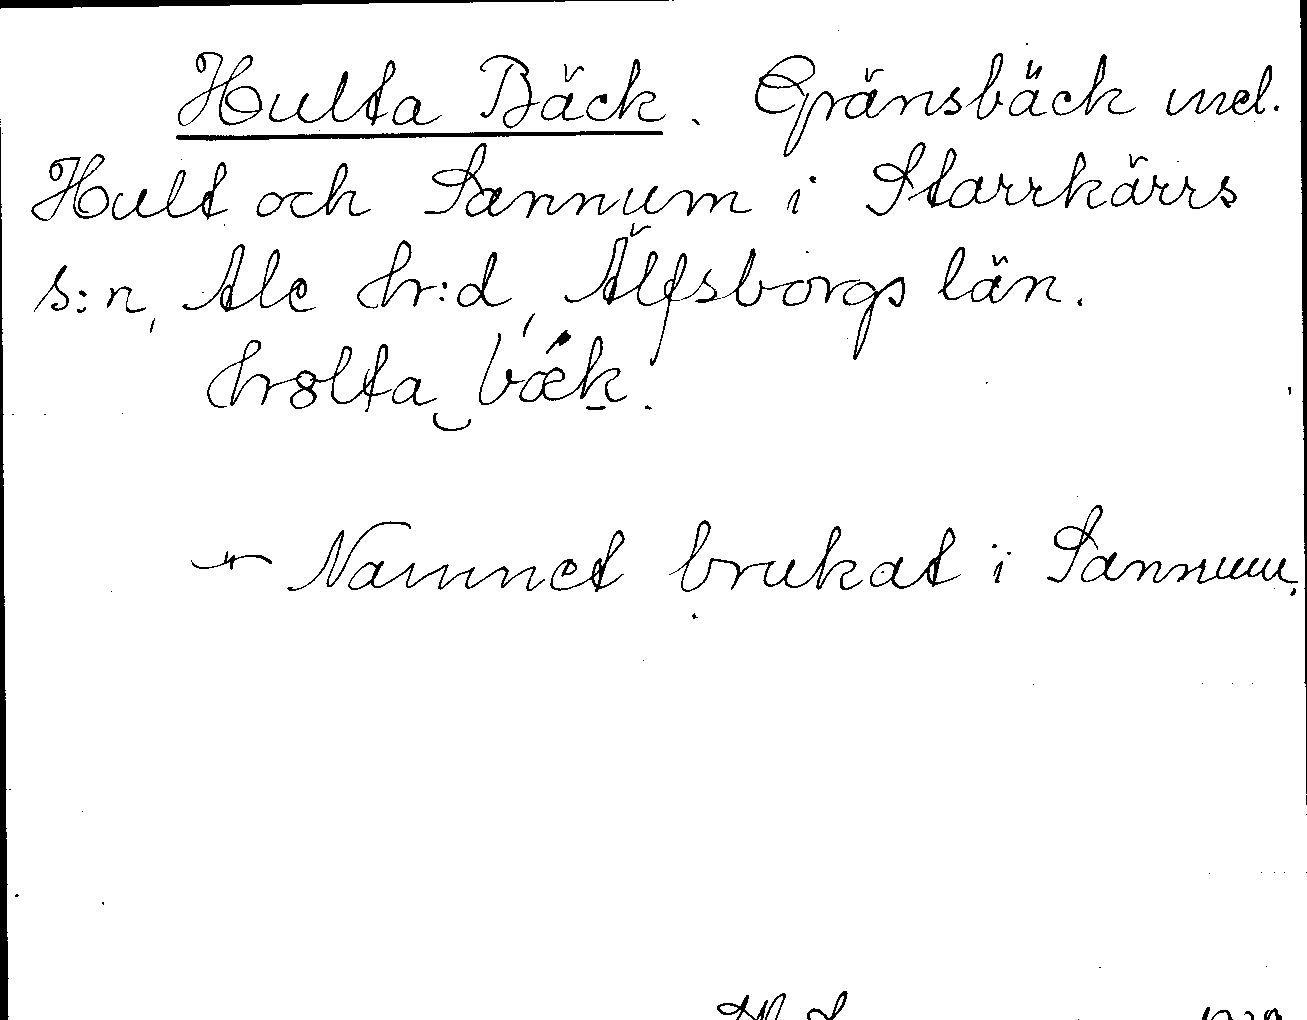 Hulta Bäck. Gränsbäck mel.
Hult och Sannum i Starrkärrs
s:n, Ale hr:d, Älfsborgs län.
bǽk.
Namnet brukat i Sannum.